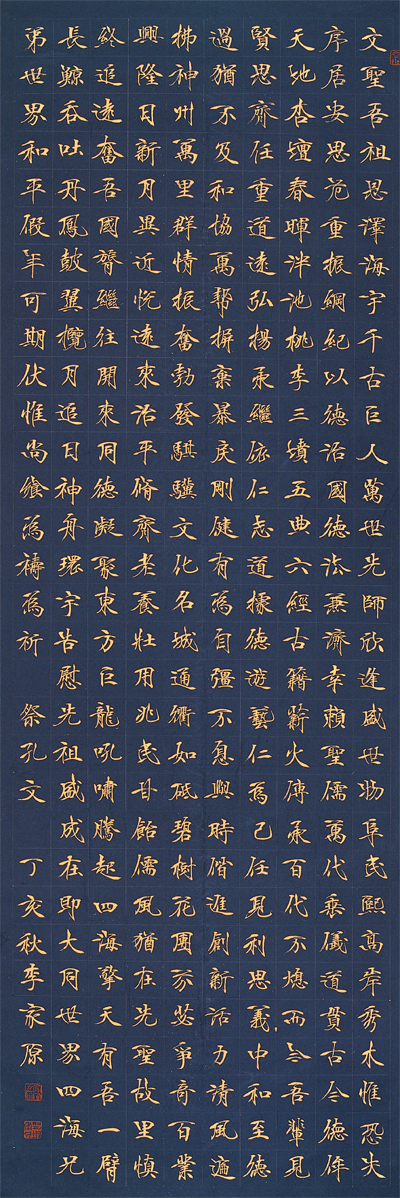 文聖吾祖恩澤海宇千古巨人萬世先師欣逢盛世物阜民熙高岸秀木惟恐失
序居安思危重振綱紀以德治國德法兼濟幸賴聖儒萬代垂儀道貫古今德侔
天地杏壇春暉泮池桃李三墳五典六經古籍薪火傳承百代不熄而今吾輩見
賢思齊任重道遠弘揚承繼依仁志道據德游藝仁為己任見利思義中和至德
過猶不及和協萬幫摒棄暴戾剛健有為自彊不息與時偕進創新活力清風遍
拂神州萬里群情振奮勃發騏驥文化名城通衢如砥碧樹花芬爭奇百業
興隆日新月異近悅遠來治平脩齊老養壯用兆民甘飴儒風猶在先聖故里慎
終追遠奮吾國膂繼往開來同德凝聚東方巨龍吼嘯騰起四海擎天有吾一臂
長鯨吞吐丹鳳鼓翼攬月追日神舟環宇告慰先祖盛成在即大同世界四海兄
第世界和平假年可期伏惟尚饗為禱為祈 祭孔文 丁亥秋李家原